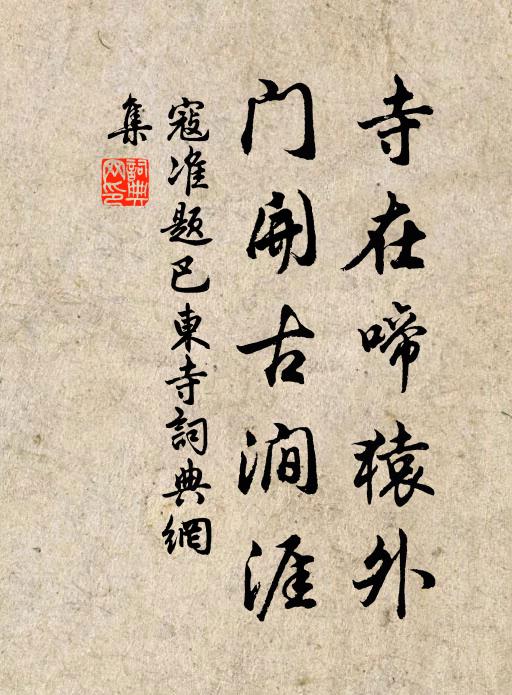 寺在啼猿外
门開古澗涯
寇准题巴東寺詞典網
集
詞典
网印